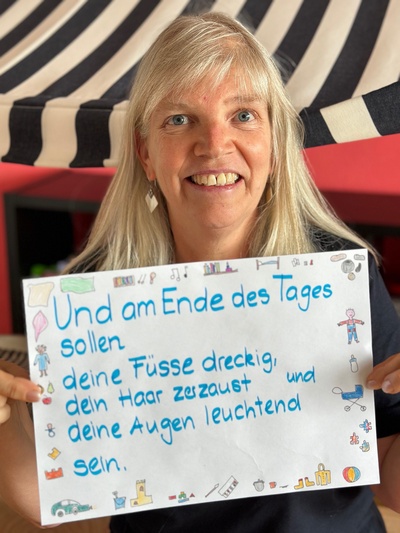 Und am Ende des Tages
sollen
deine Füsse dreckig,
dein Haar zerzaust und
deine Augen leuchtend
sein.